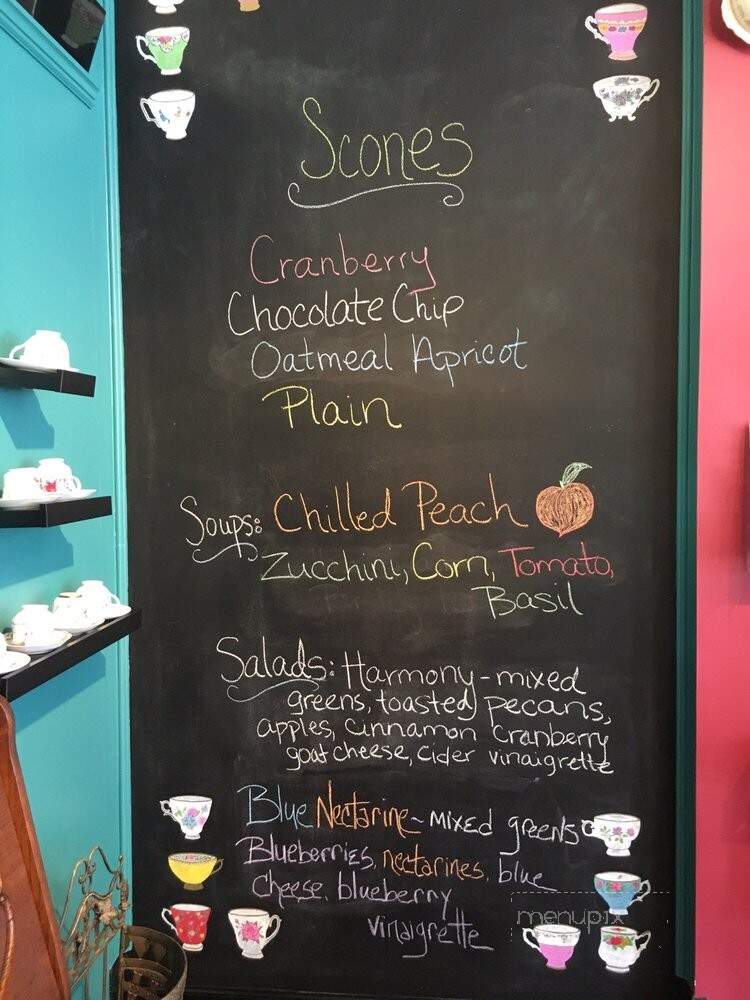 Scones
Cranberry
Chocolate Chip
Oatmeal Apricot
Plain
Soups: Chilled Peach
Zucchini, Corn, Tomato,
Basil
Salads: Harmony - mixed
greens, toasted pecans,
apples, cinnamon cranberry
goat cheese, cider vinaigrette
Blue Nectarine - mixed greens
Blueberries, nectarines, blue
cheese, blueberry
vinaigrette
menupix